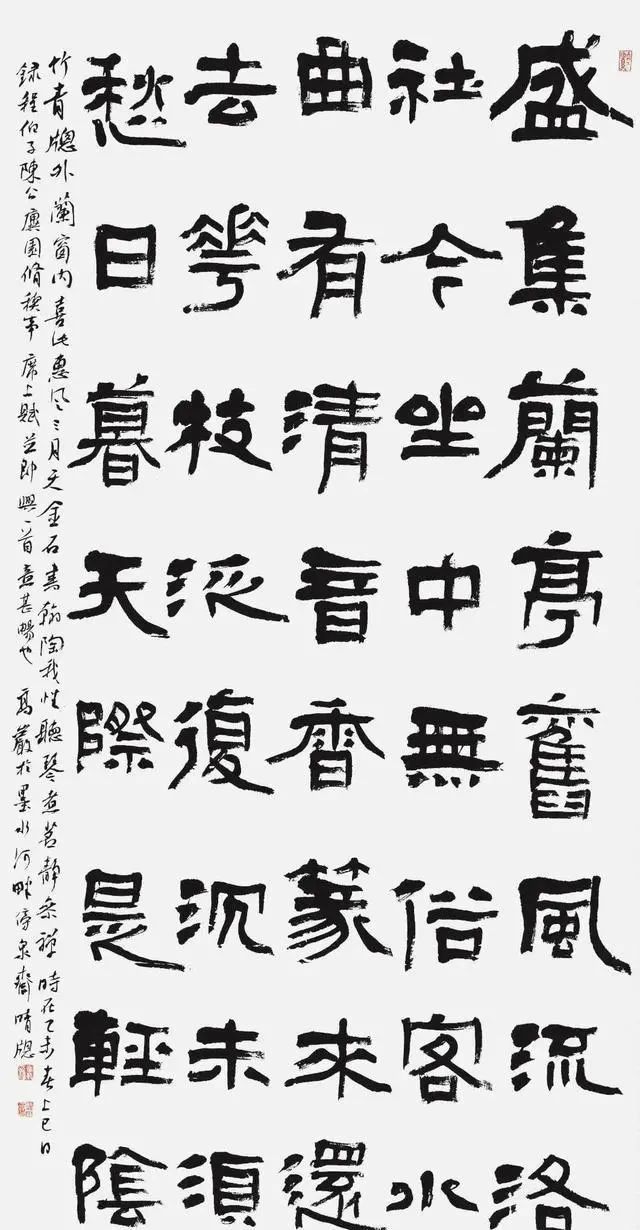 盛集蘭亭舊風流洛
社今坐中無俗客水
曲有清音香篆來還
去花枝泛復沉未須
愁日暮天際是輕陰
竹青牕外蘭窗内喜此惠风三月天金石書翰陶我性聽琴煮茗靜參禪時在乙未春上巳日
録程伯子陳公廙園脩禊事席上賦並即興一首意甚暢也高巖於墨水河畔泉齋晴牕